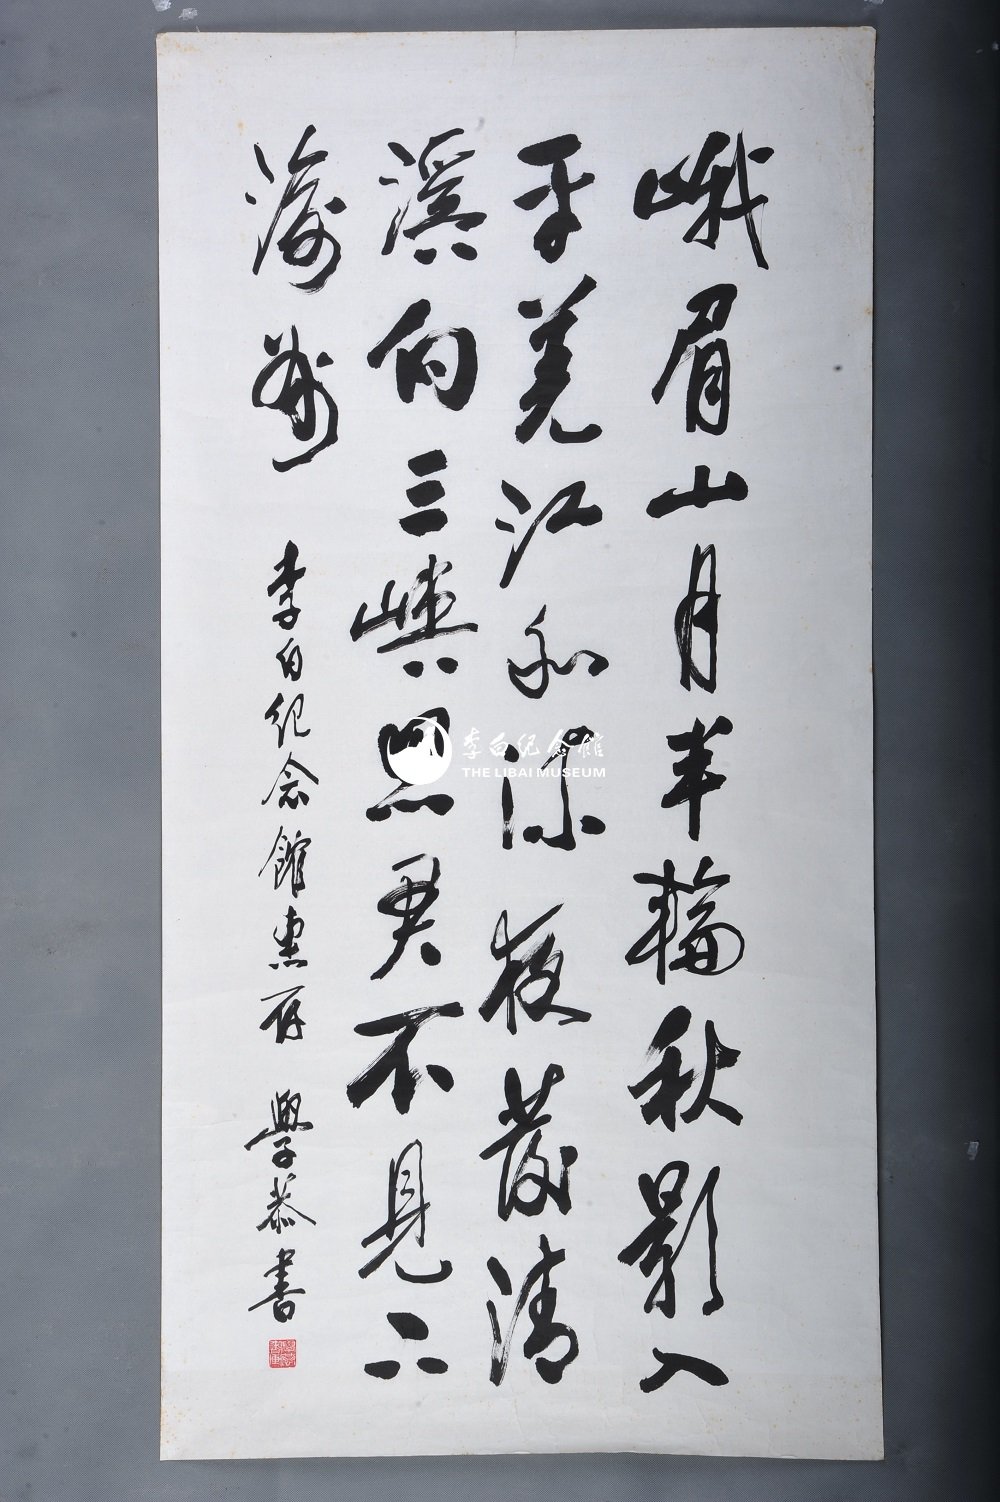 峨眉山月半輪秋影入
平羌江水流夜發清
溪向三峽思君不見下
渝州
李白紀念館惠存 學恭書
李白纪念馆
THE LIBAI MUSEUM